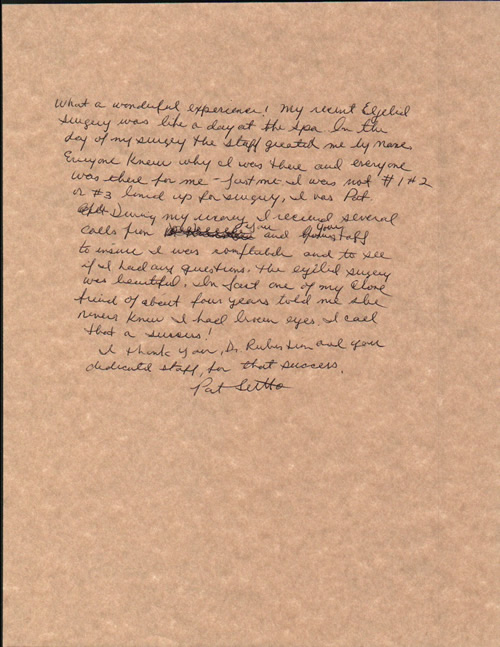 What a wonderful experience! My recent Eyelid
surgery was like a day at the spa. On the
day of my surgery the staff greeted me by name.
Everyone knew why I was there and everyone
was there for me - just me. I was not #1 #2
or #3 lined up for surgery, I was Pat
During my recovery I received several
calls from you and your staff
to insure I was comfortable and to see
if I had any questions. The eyelid surgery
was beautiful. In fact one of my close
friend of about four years told me she
never knew I had brown eyes. I call
that a success!
I thank you, Dr. Rubinstein and your
dedicated staff, for that success.
Pat